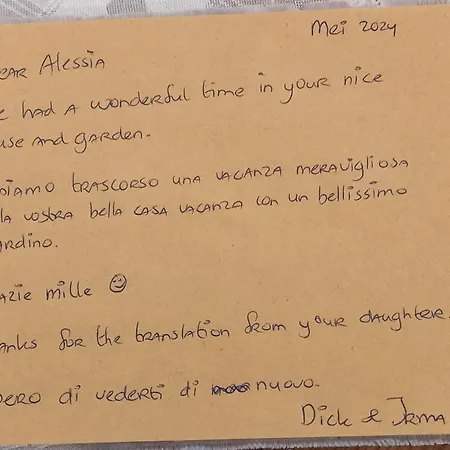 Mei 2024
EAR Alessia
e had a wonderful time in your nice
use and garden.
biamo trascorso una vacanza meravigliosa
lla vostra bella casa vacanza con un bellissimo
ardino.
azie mille ☺
anks for the translation from your daughter.
pero di vederti di nuovo.
Dick & Irma